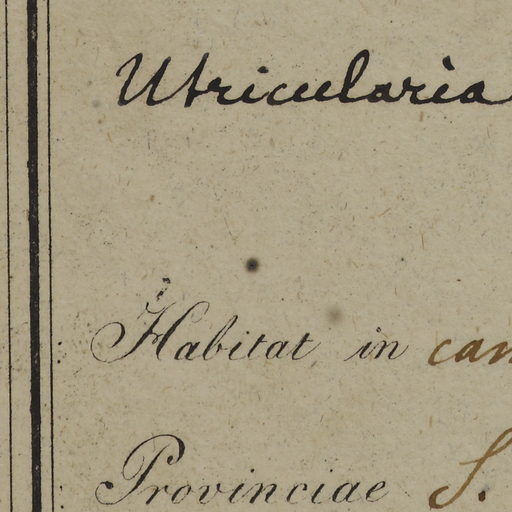 Utricularia
Habitat in
Provinciae S.